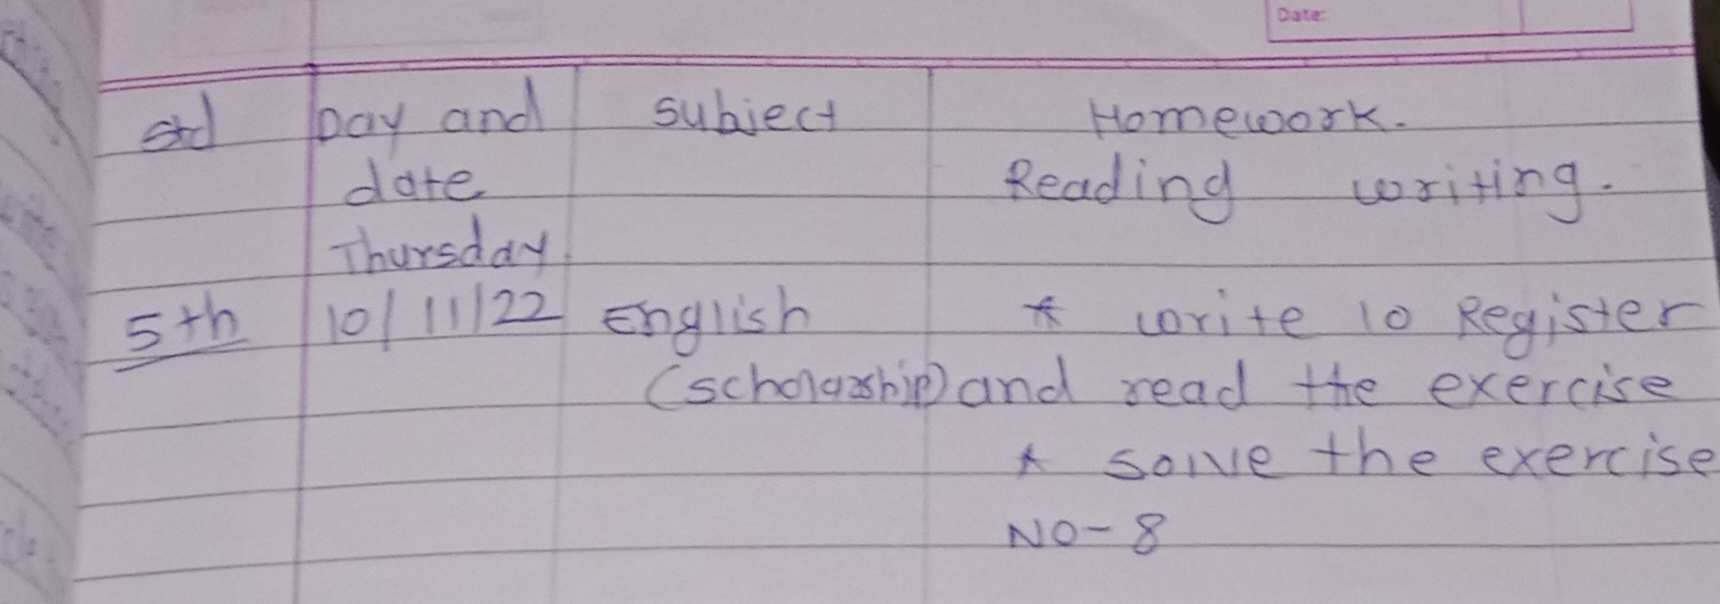 Date:
std Day and subject Homework.
date Reading writing.
Thursday
5th 10/11/22 English * write 10 Register
(scholarship) and read the exercise
* solve the exercise
NO-8